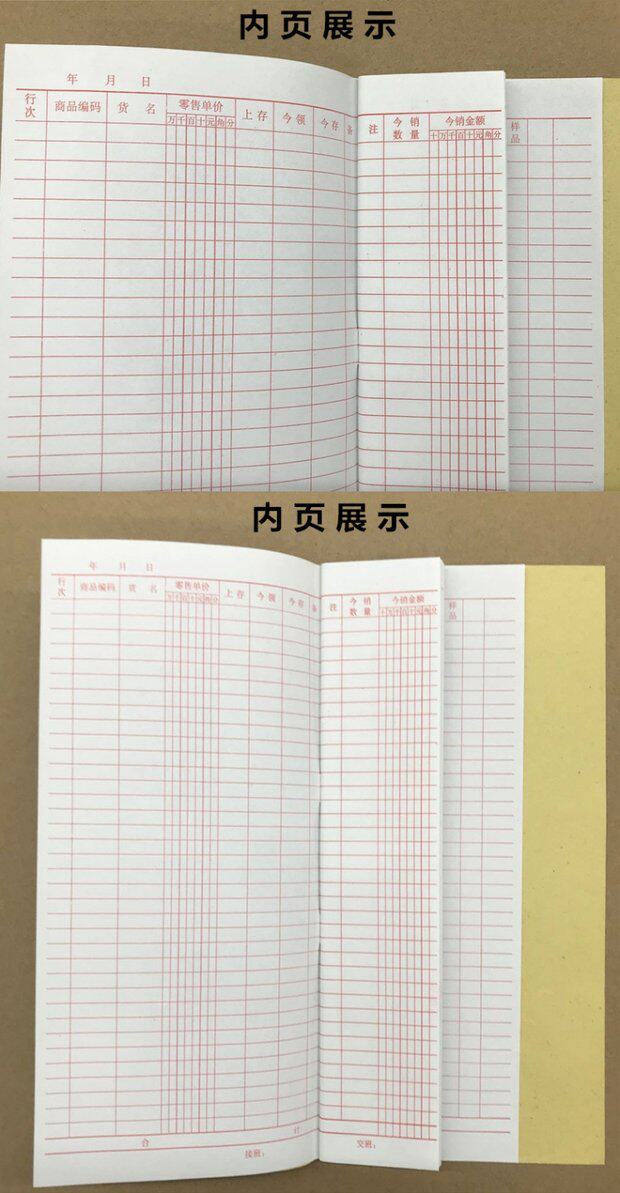 内页展示
年 月 日
行次 商品编码 货 名 零售单价 上存 今领 今存 备 注 今销数量 今销金额 样品
万千百十元角分 十万千百十元角分
内页展示
年 月 日
行次 商品编码 货 名 零售单价 上存 今领 今存 备 注 今销数量 今销金额 样品
万千百十元角分 十万千百十元角分
合 计
接班： 交班：